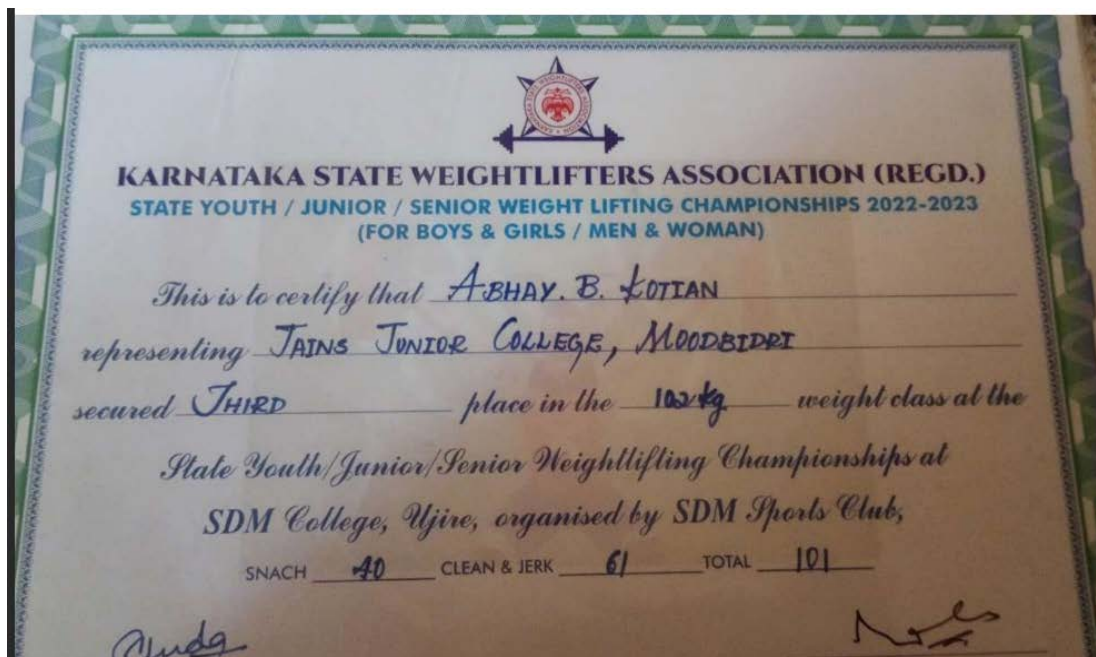 KARNATAKA STATE WEIGHTLIFTERS ASSOCIATION (REGD.)
STATE YOUTH / JUNIOR / SENIOR WEIGHT LIFTING CHAMPIONSHIPS 2022-2023
(FOR BOYS & GIRLS / MEN & WOMAN)
This is to certify that ABHAY. B. KOTIAN
representing JAINS JUNIOR COLLEGE, MOODBIDRI
secured THIRD place in the 102 kg weight class at the
State Youth/Junior/Senior Weightlifting Championships at
SDM College, Ujire, organised by SDM Sports Club,
SNACH 40 CLEAN & JERK 61 TOTAL 101